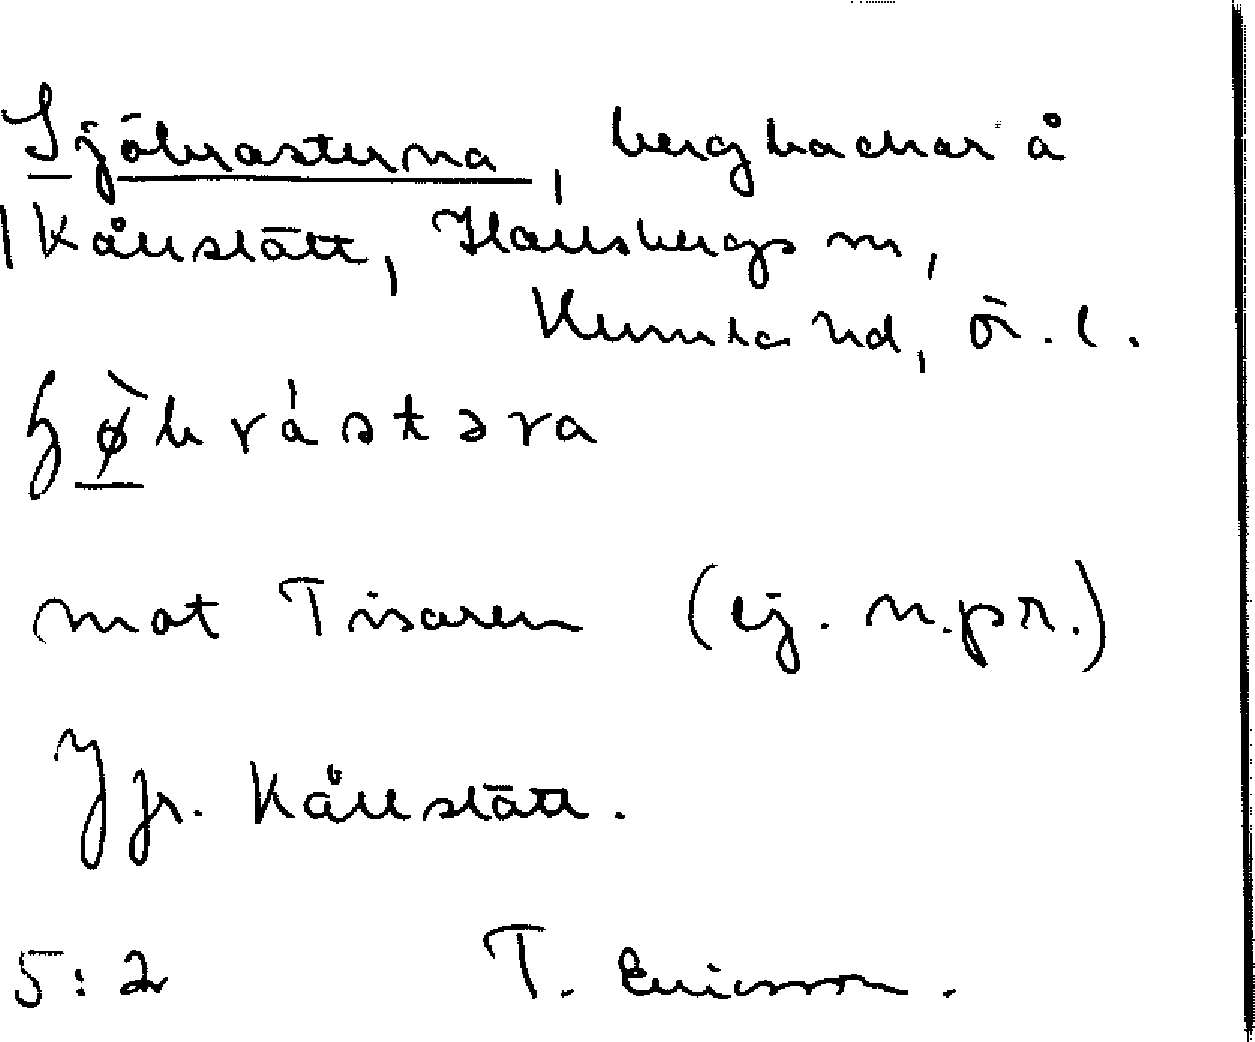 Sjöbrasterna, bergbackar å
Kånstätt, Hallsbergs m,
Kumla hd, ö. l.
mot Tisaren (ej. n.pr.)
Jfr. Kånstätt.
5:2 T. Ericsson.